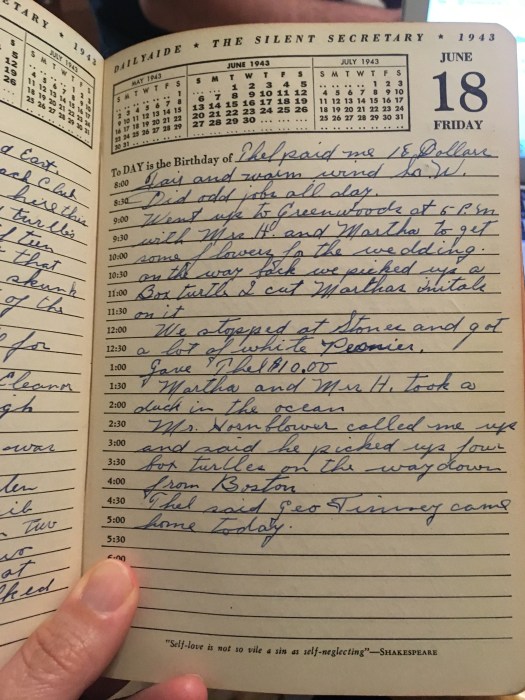 ETARY * 1943
DAILYAIDE * THE SILENT SECRETARY * 1943
JULY 1943
MAY 1943
JUNE 1943
JULY 1943
S M T W T F S
S M T W T F S
S M T W T F S
1 2 3 4 5
1 2 3
6 7 8 9 10 11 12
4 5 6 7 8 9 10
13 14 15 16 17 18 19
11 12 13 14 15 16 17
20 21 22 23 24 25 26
18 19 20 21 22 23 24
27 28 29 30
25 26 27 28 29 30 31
JUNE
18
FRIDAY
To DAY is the Birthday of Thel paid me 18 Dollars
8:00 Fair and warm wind So. W.
8:30 Did odd jobs all day.
9:00 Went up to Greenwoods at 5 P.m
9:30 with Mrs H. and Martha to get
10:00 some flowers for the wedding.
10:30 on the way back we picked up a
11:00 Box turtle I cut Marthas initals
11:30 on it
12:00 We stopped at Stones and got
12:30 a lot of white Peonies.
1:00 Gave Thel $10.00
1:30 Martha and Mrs H. took a
2:00 duck in the ocean
2:30 Mr. Hornblower called me up
3:00 and said he picked up four
3:30 box turtles on the way down
4:00 from Boston
4:30 Thel said Geo Tinney came
5:00 home today.
5:30
6:00
"Self-love is not so vile a sin as self-neglecting"—SHAKESPEARE